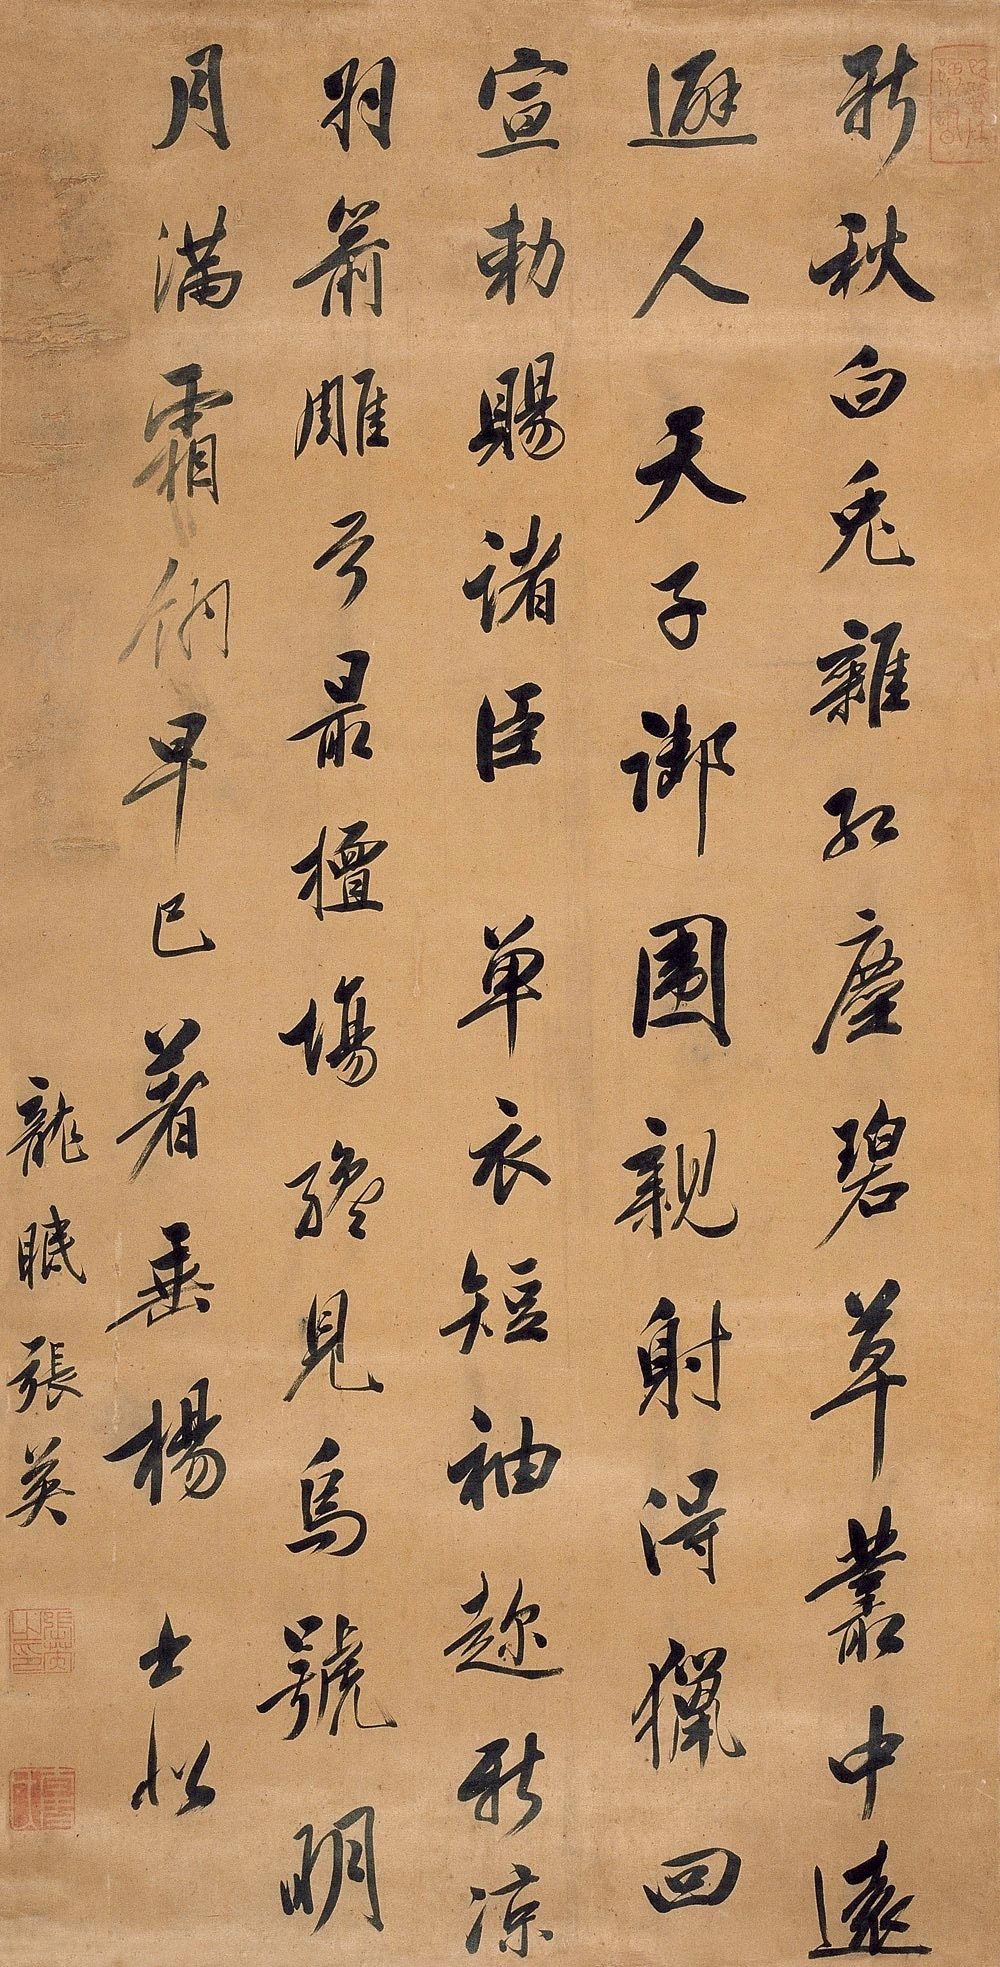 新秋白兔雜紅塵碧草叢中遠
避人天子御圍親射得獵回
宣勅賜諸臣 单衣短袖趂新涼
羽箭雕弓最擅場纔見烏號明
月滿霜翎早已著垂楊 士松
龍眠張英
張英之印